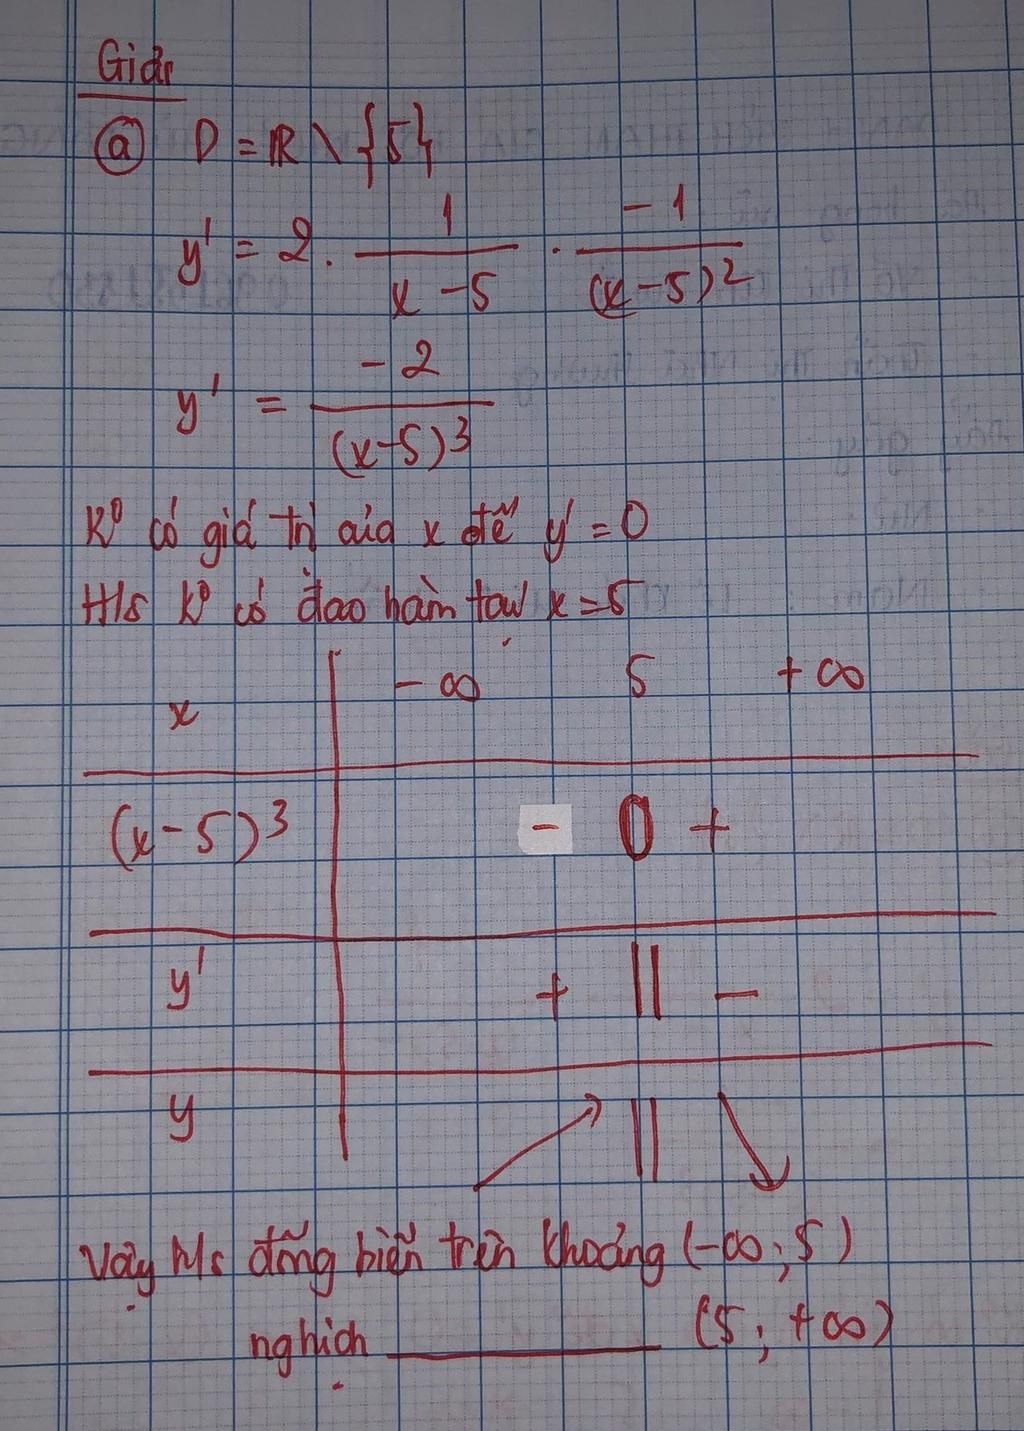 Giải
ⓐ D = ℝ \ {5}
y' = 2 . 1/(x - 5) . -1/(x-5)²
y' = -2/(x-5)³
K⁰ có giá trị của x để y' = 0
H/s K⁰ có đạo hàm tại x = 5
x -∞ 5 +∞
(x-5)³ - 0 + 
y' + || -
y ||
Vậy h/s đồng biến trên khoảng (-∞; 5)
nghịch (5; +∞)